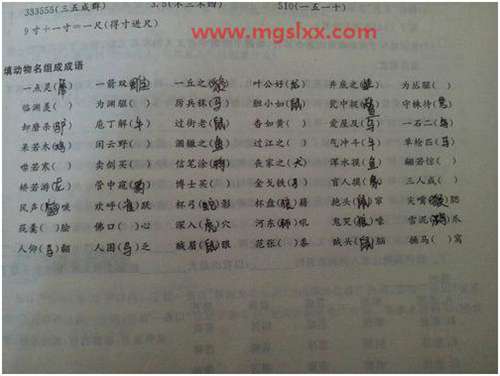 333555(三五成群) 3.5(不三不四) 510(一五一十)
www.mgslxx.com
9寸+一寸=一尺(得寸进尺)
填动物名组成成语
一点灵( ) 一箭双( ) 一丘之( ) 叶公好(龙) 井底之( ) 为丛驱( )
临渊羡( ) 为渊驱( ) 厉兵秣(马) 胆小如(鼠) 瓮中捉( ) 守株待(兔)
卸磨杀(驴) 庖丁解(牛) 过街老(鼠) 杳如黄( ) 爱屋及( ) 一石二(鸟)
呆若木(鸡) 闲云野( ) 涸辙之(鱼) 过江之( ) 气冲斗(牛) 单枪匹(马)
噤若寒( ) 卖剑买( ) 信笔涂(鸦) 丧家之(犬) 浑水摸(鱼) 翩若惊( )
矫若游(龙) 管中窥( ) 博士买( ) 金戈铁(马) 盲人摸(象) 三人成( )
风声( )唳 欢呼(雀)跃 杯弓(蛇)影 杯盘( )藉 抱头( )窜 尖嘴(猴)腮
花( )脸 佛口( )心 深入(虎)穴 河东( )吼 鬼哭( )嚎 雪泥(鸿)爪
人仰(马)翻 人困(马)乏 贼眉(鼠)眼 花张( )客 贼头(鼠)脑 捅马( )窝